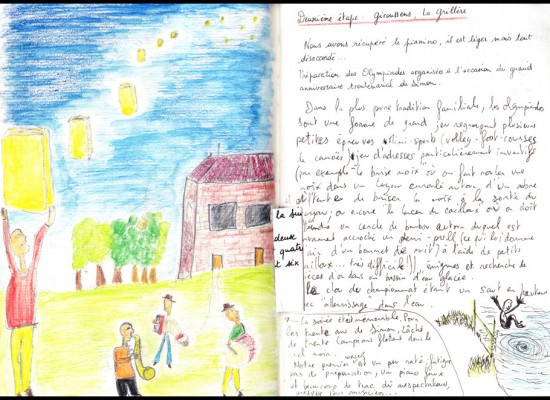 Deuxième étape : Giroussens, La Grillère
Nous avons récupéré le pianino, il est léger mais tout
désaccordé...
Préparation des Olympiades organisées à l'occasion du grand
anniversaire trentenarial de Simon.
Dans la plus pure tradition familiale, les Olympiades
sont une forme de grand jeu regroupant plusieurs
petites épreuves mini-sports (volley-foot-courses
de canoës) jeu d'adresses particulièrement inventifs
(par exemple le noix où on fait rouler une
noix dans un tuyau enroulé autour d'un arbre
de briser la noix à la sortie du
ou encore le lancer de cailloux où on doit
un cercle de bambou autour duquel est
accroché un
d'un bonnet de nuit) à l'aide de petits
très difficile!), énigmes et recherche de
d'or dans un bassin d'eau glacée.
le clou du championnat étant un saut en
avec "atterrissage" dans l'eau.
la sui
deux
quatr
t six
La soirée était mémorable. Pour
les trente ans de Simon, lâché
de trente lampions flottant dans le
ciel noir.
Notre premier est un peu raté : fatigue
pas de préparation, un piano faux
et beaucoup de trac du aux spectateurs,